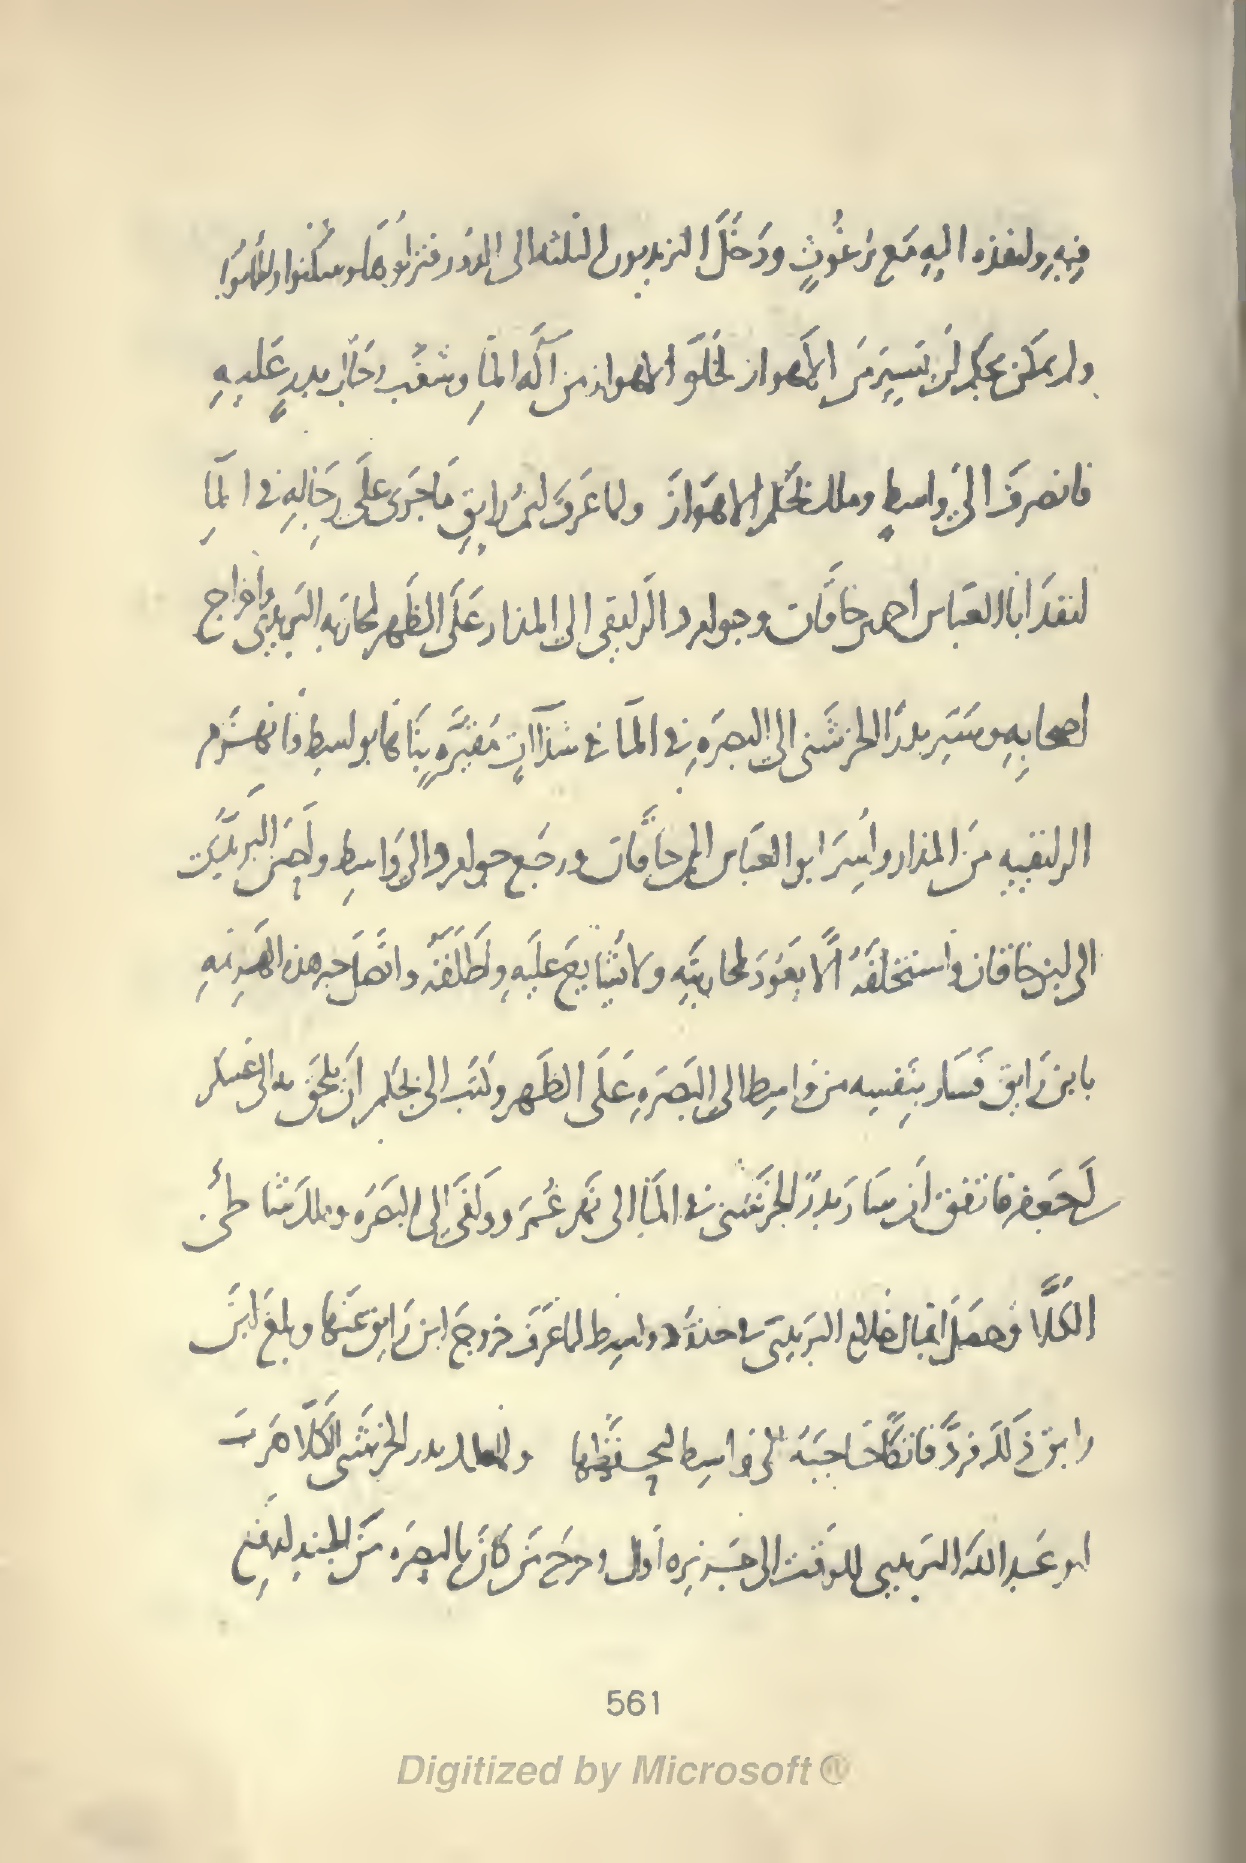 فيه وانفذه اليه مَع بُرغُوثٍ ودَخَل البريديون الثلثه الى الدور فنزلوها وسكنوا واطمانوا
ولم يمكن بجكم ان يَسيرَ منَ الاهواز لخلوّ الاهواز من آله الماءِ وشغَب رجال بدرٍ عَليهِ
فانصرفَ الى واسطٍ وملك بجكم الاهوازَ ولما عَرفَ ابنُ رايقٍ مَا جَرى عَلَى رجَالِهِ في الماءِ
انفذ ابا العَباس احمد بن خاقان وجوامرد الرايقى الى المذار عَلَى الظهر لمحاربه البريديّ واخراج
اصحابِهِ وسَيّر بدرًا الخرشنى الى البصرَهِ في الماء في شذاآتٍ مقيّرهٍ بنَاها بواسِط فانهَزم
الرايقيه منَ المذار واُسِرَ ابو العَباس ابن خاقان ورجَع جوامرد الى وَاسِطٍ واحضر البَريديّ
ابن خاقان واستحلَفَهُ الّا يَعُودَ لمحاربتِه ولا يُشَايع عليَهِ واَطلَقَهُ واتصل خبر هذه الهَزِيمهِ
بابن رَايق فسَار بنفسِه من وَاسِط الى البَصرَهِ عَلَى الظَهر وكتَب الى بجكم اَن يلحَق به الى عَسكر
اَبى جَعفر فاتفق اَن سَارَ بدرٌ الخرشنى في الماء الى نَهر عُمر ووَافى الى البَصَره وملك شاطئ
الكَلّاءَ وحصَل اقبال غلام البَريديّ في حدودِ واسِط لما عَرفَ خروجَ ابن رَايق عَنها وبلغ ابنَ
رايق ذَلكَ فردّ فاتكًا حَاجبَهُ الى وَاسِط ليحفظها ولما ملك بدر الخرشنى الكَلّاء هَربَ
ابو عَبد اللّه البريدي للوَقت الى جَزيره اُوال وخرج من كانَ بالبصَره منَ الجند لدفع
561
Digitized by Microsoft ®